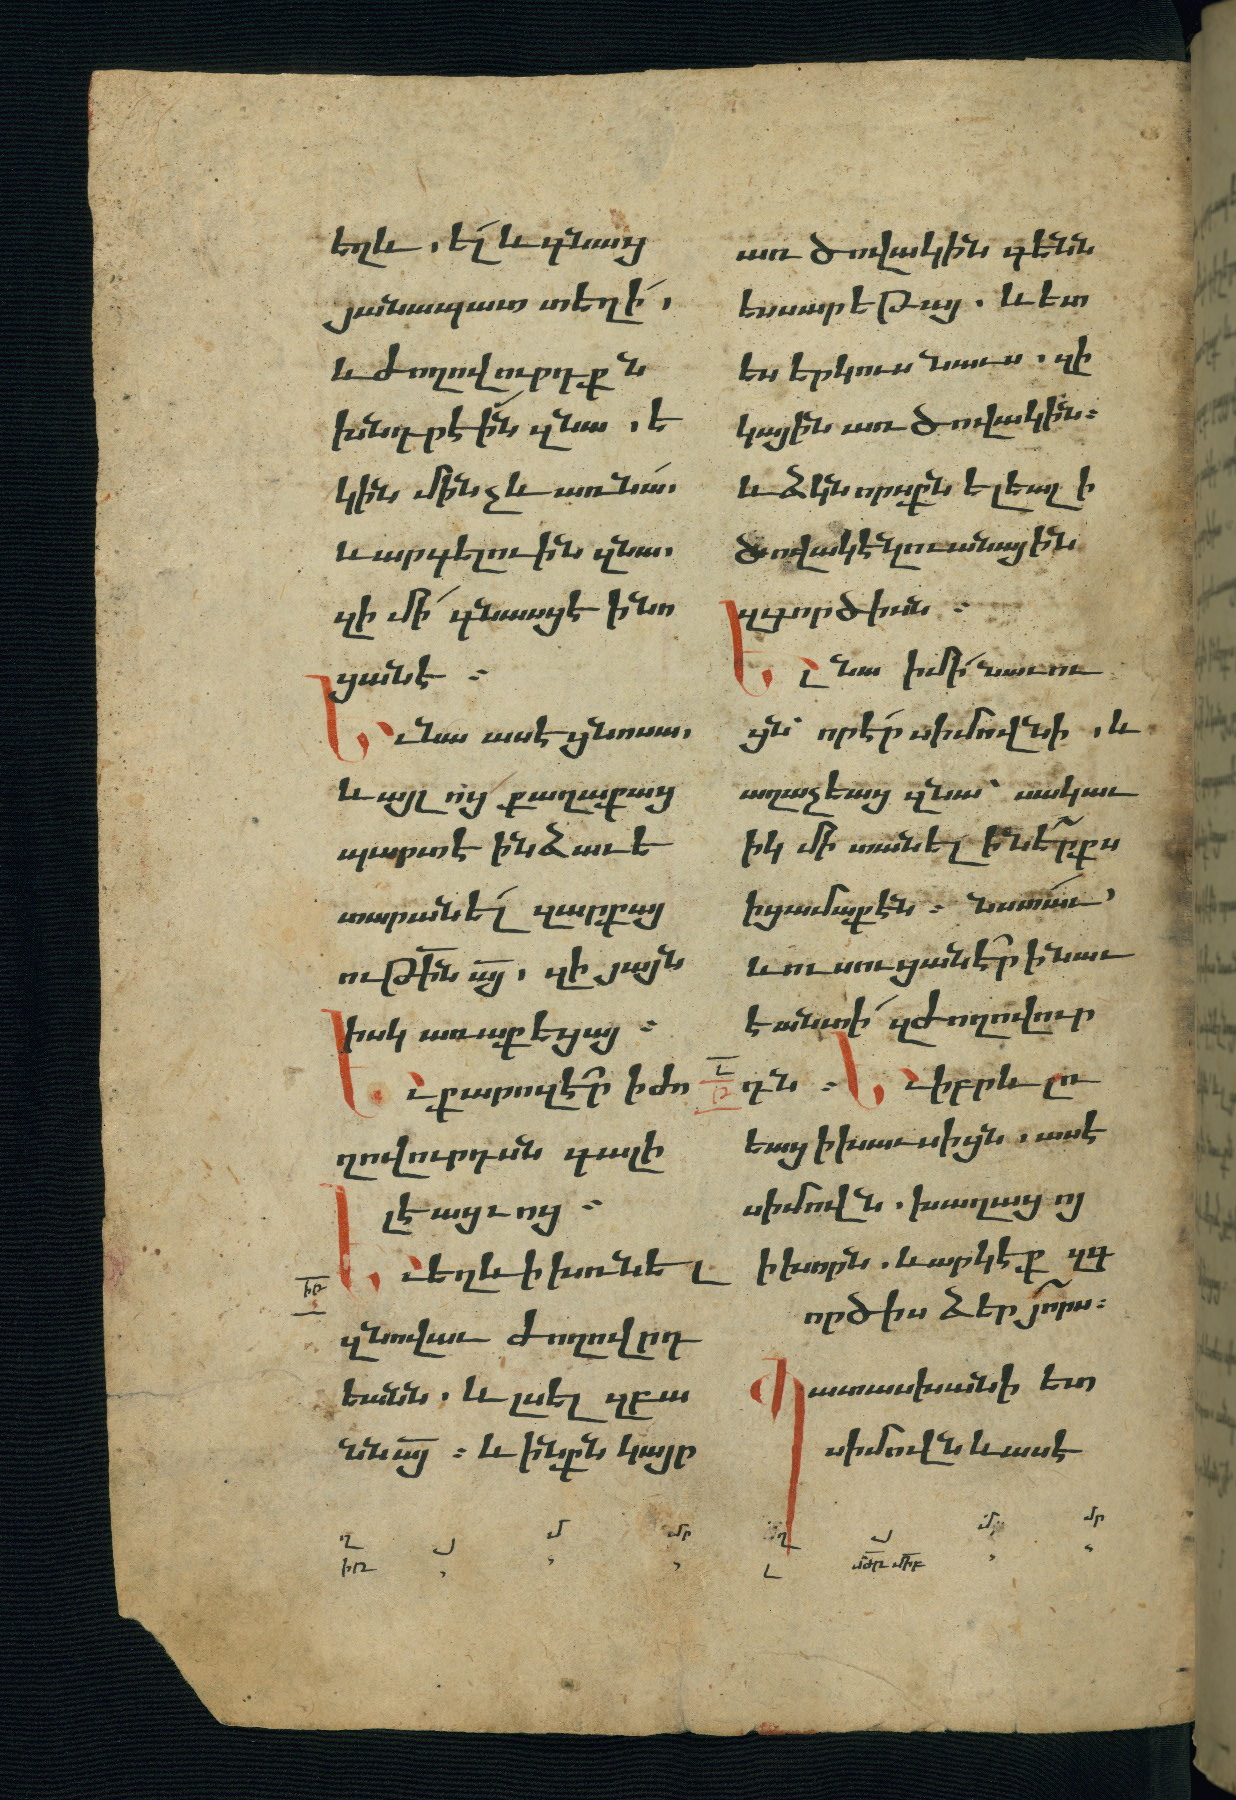 եղև. ել և գնաց
յանապատ տեղի.
և ժողովուրդքն
խնդրէին զնա. ե
կին մինչև առ նա.
և արգելուին զնա.
զի մի գնասցէ ի նո
ցանէ :
Եւ նա ասէ ցնոսա.
և այլոց քաղաքաց
պարտէ ինձ աւե
տարանել զարքայ
ութի̅ն ա̅յ. զի յայն
իսկ առաքեցայ :
Եւ քարոզէր ի ժո
ղովուրդսն գալի
լէացւոց :
Եւ եղև ի խռնել
զնովաւ ժողովրդ
եանն. և լսել զբա
նն ա̅յ : և ինքն կայր
առ ծովակին գենն
եսարեթայ. և ետ
ես երկուս նաւս. զի
կային առ ծովակին:
և ձկնորսքն ելեալ ի
ծովակէ լուանային
զգործիսն :
Ել նա ի մի նաւու
ցն՝ որ էր սիմովնի. և
աղաչեաց զնա՝ սակաւ
իկ մի տանել ի ներքս
ի ցամաքէն : նստաւ
և ուսուցանէր ի նաւ
է անտի զժողովուր
դն : Եւ իբրև լռ
եաց ի խաւսիցն. ասէ
սիմովն. խաղացոյ
ի խորն. և արկէք զգ
ործիս ձեր յորս:
Պատասխանի ետ
սիմովն և ասէ